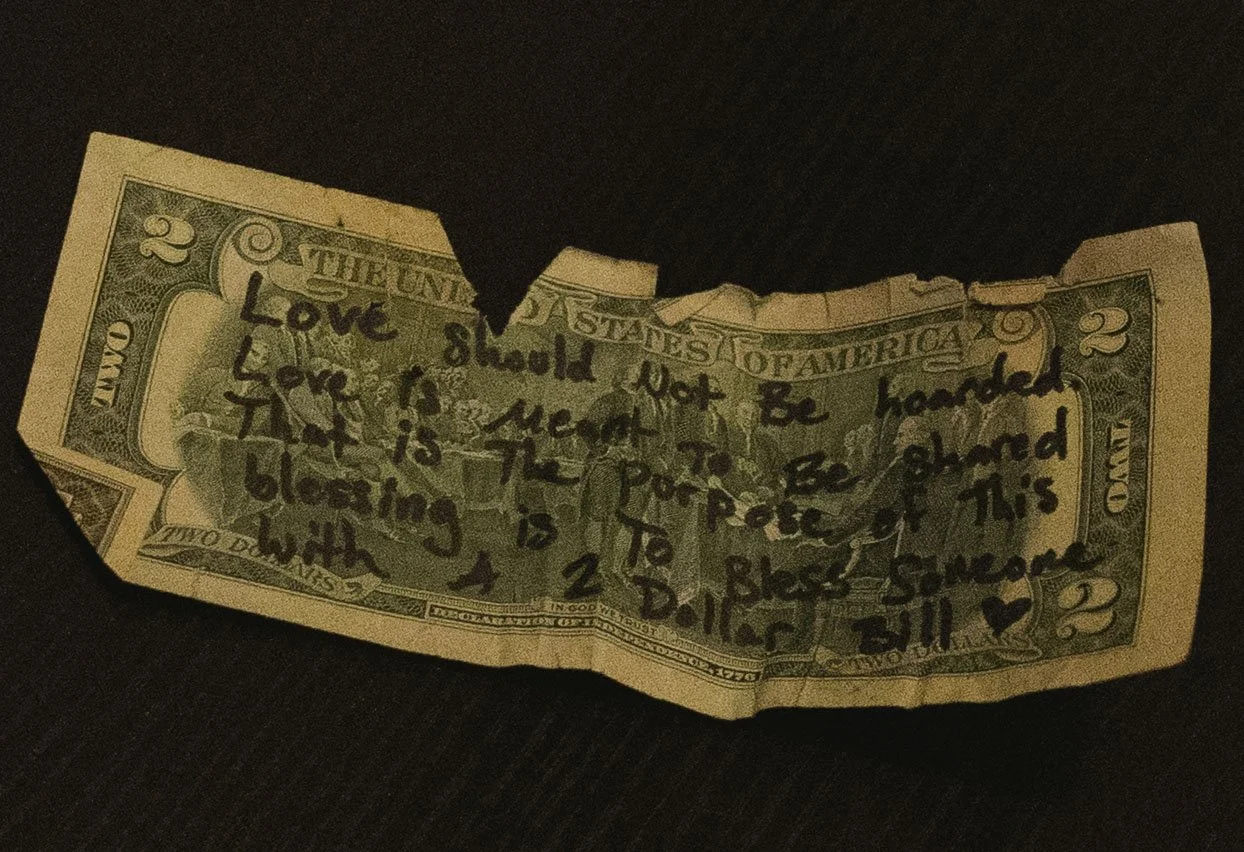 2
THE UNI D STATES OF AMERICA
2
TWO
Love should Not Be hoarded.
Love is Meant To Be shared
That is The Porpose of This
blessing is To Bless Someone
with A 2 Dollar Bill ♥
TWO
TWO DOLLARS
IN GOD WE TRUST
DECLARATION OF INDEPENDENCE, 1776
TWO DOLLARS
2